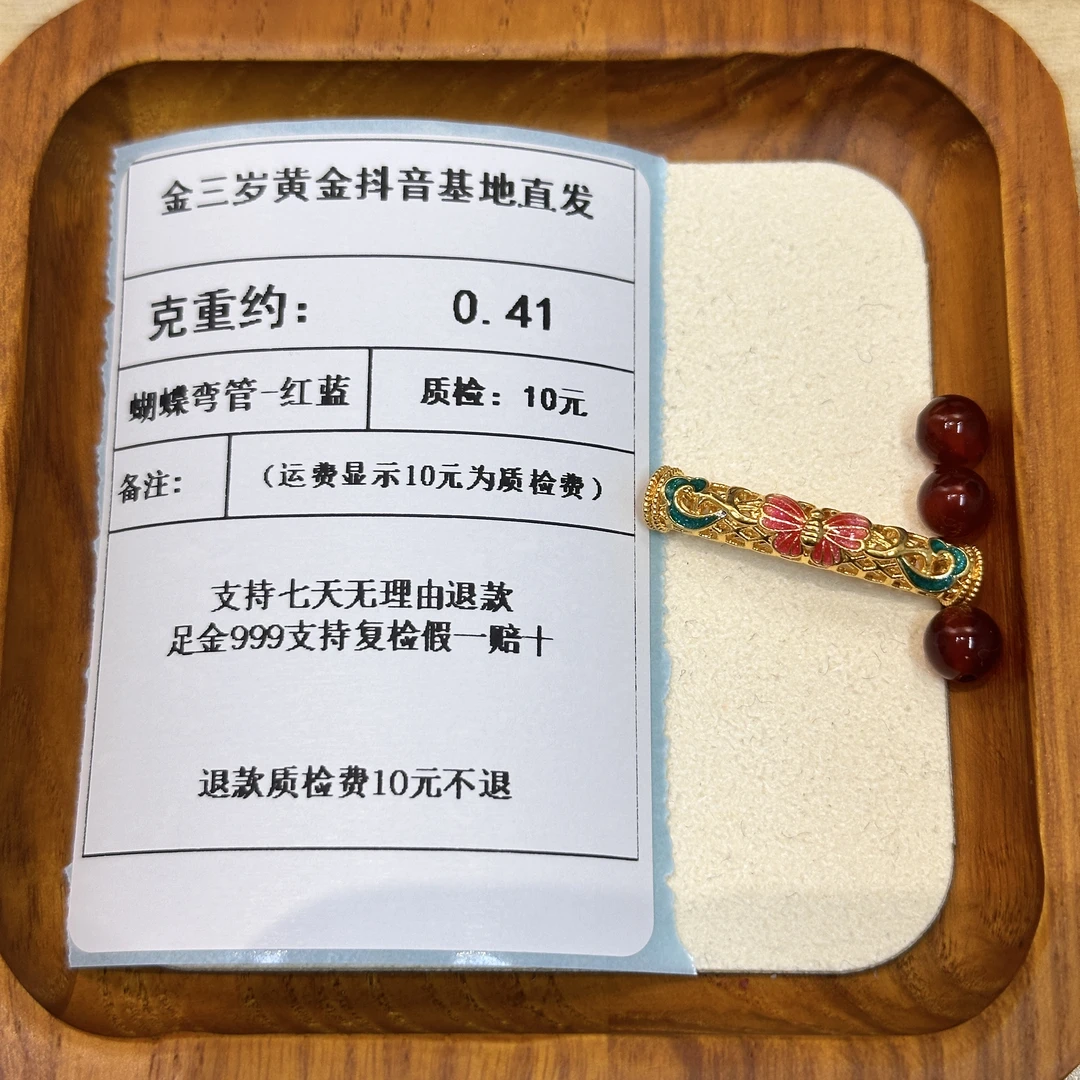 金三岁黄金抖音基地直发
克重约： 0.41
蝴蝶弯管-红蓝 质检：10元
备注： （运费显示10元为质检费）
支持七天无理由退款
足金999支持复检假一赔十
退款质检费10元不退